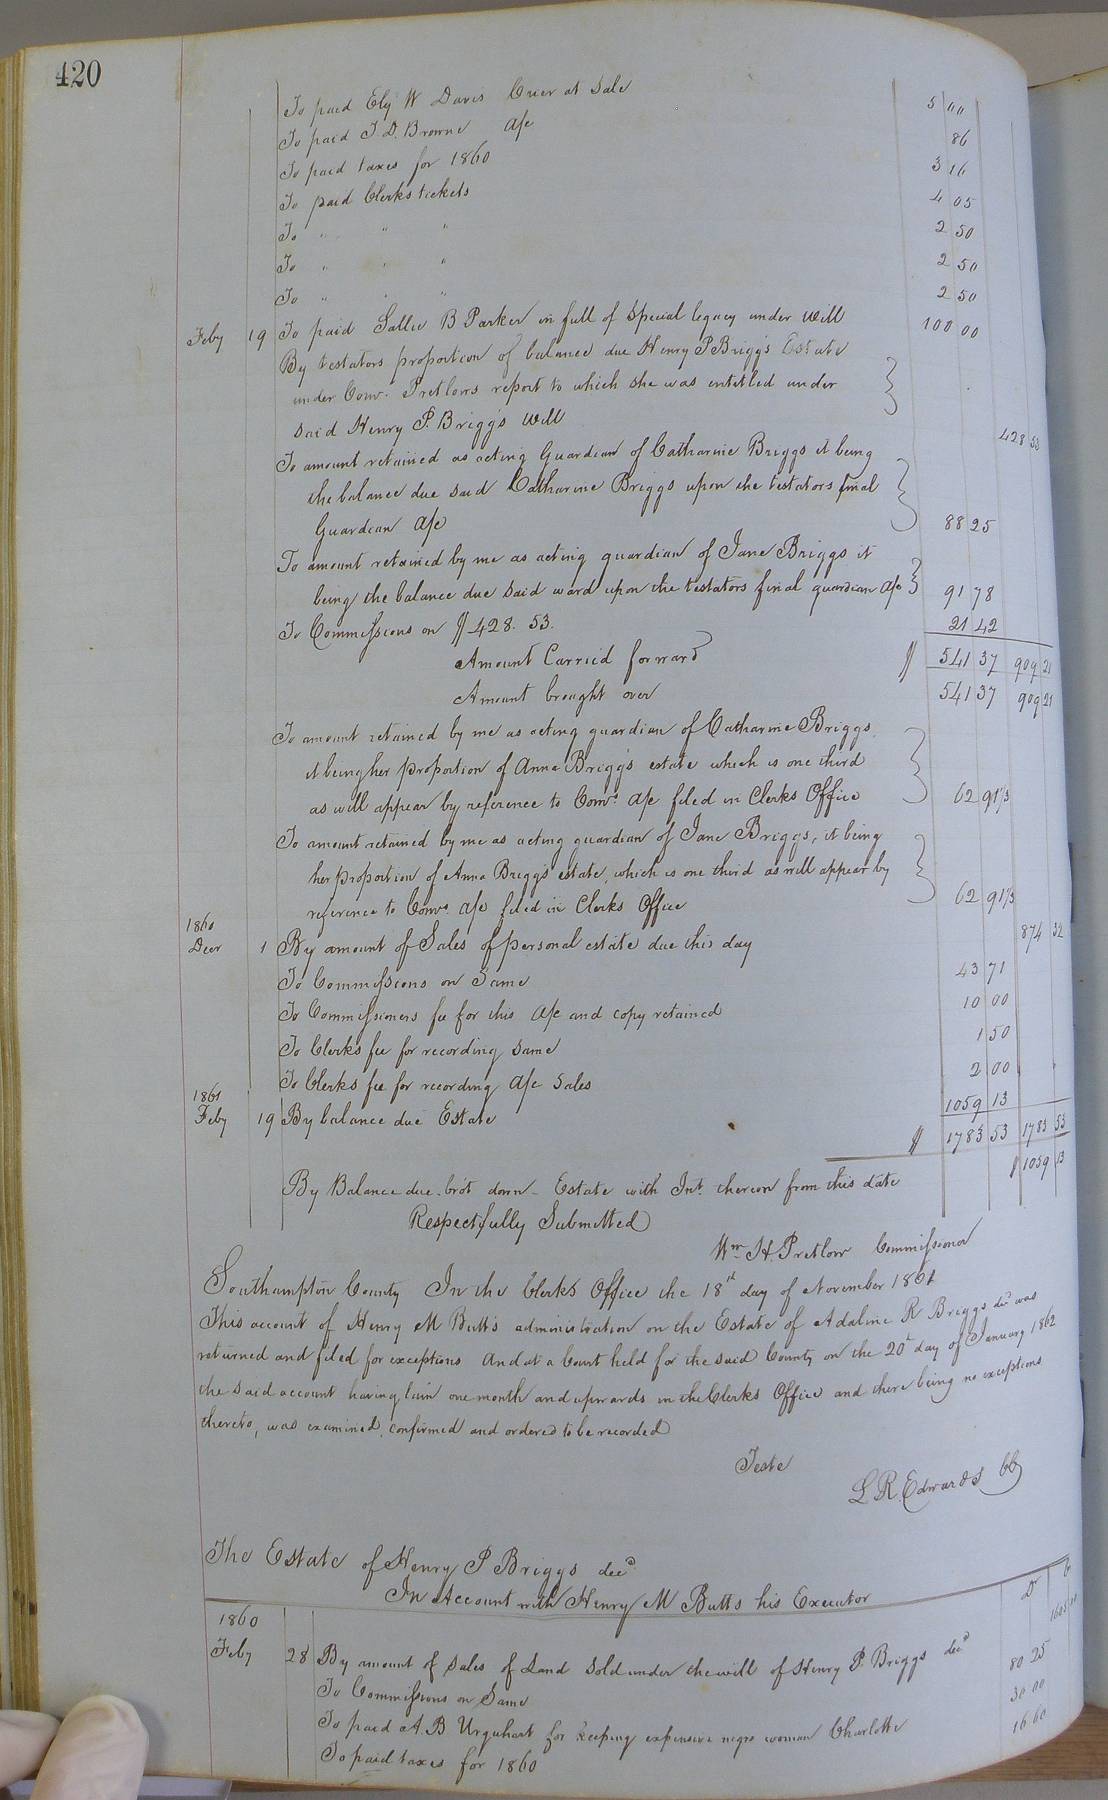 420
To paid Ely W Davis Crier at Sale 5 00
To paid J. D. Browne a/c 86
To paid taxes for 1860 3 16
To paid Clerks tickets 4 05
To " " " 2 50
To " " " 2 50
To " " " 2 50
Feby 19 To paid Sallie B Parker in full of Special legacy under Will 100 00
By testators proportion of balance due Henry P Briggs Estate
under Comr. Pretlows report to which she was entitled under
said Henry P. Briggs Will 428 53
To amount retained as acting Guardian of Catharine Briggs it being
the balance due said Catharine Briggs upon the testators final
Guardian a/c 88 25
To amount retained by me as acting guardian of Jane Briggs it
being the balance due said ward upon the testators final guardian a/c 91 78
To Commissions on $428. 53. 21 42
Amount Carried forward $ 541 37 909 21
Amount brought over 541 37 909 21
To amount retained by me as acting guardian of Catharine Briggs
it being her proportion of Anna Briggs estate which is one third
as will appear by reference to Coms. a/c filed in Clerks Office 62 91 1/3
To amount retained by me as acting guardian of Jane Briggs, it being
her proportion of Anna Briggs estate, which is one third as will appear by
reference to Coms. a/c filed in Clerks Office 62 91 1/3
1860
Decr 1 By amount of Sales of personal estate due this day 874 32
To Commissions on Same 43 71
To Commissioners fee for this a/c and copy retained 10 00
To Clerks fee for recording same 1 50
To Clerks fee for recording a/c sales 2 00
1861
Feby 19 By balance due Estate 1059 13
$ 1783 53 1783 53
By Balance due brot down Estate with Int. thereon from this date $ 1059 13
Respectfully Submitted
Wm H. Pretlow Commissioner
Southampton County In the Clerks Office the 18th day of November 1861
This account of Henry M Butts administration on the Estate of Adaline R Briggs decd was
returned and filed for exceptions And at a Court held for the said County on the 20th day of January 1862
the said account having lain one month and upwards in the Clerks Office and there being no exceptions
thereto, was examined, confirmed and ordered to be recorded
Teste
L R Edwards CC
The Estate of Henry P Briggs decd
In Account with Henry M Butts his Executor
Dr Cr
1860
Feby 28 By amount of sales of Land sold under the will of Henry P. Briggs decd 1605 00
To Commissions on Same 80 25
To paid A. B Urquhart for keeping expensive negro woman Charlotte 30 00
To paid taxes for 1860 16 60